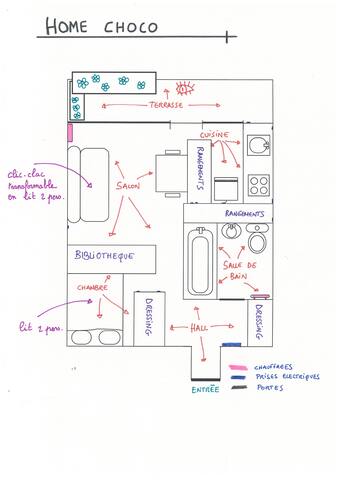 HOME CHOCO
TERRASSE
CUISINE
RANGEMENTS
clic-clac
transformable
en lit 2 pers.
SALON
RANGEMENTS
BIBLIOTHEQUE
SALLE DE
BAIN
CHAMBRE
lit 2 pers.
DRESSING
HALL
DRESSING
ENTRÉE
CHAUFFAGES
PRISES ELECTRIQUES
PORTES